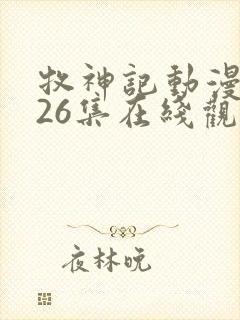 牧神記動漫
26集在綫觀
夜林晚